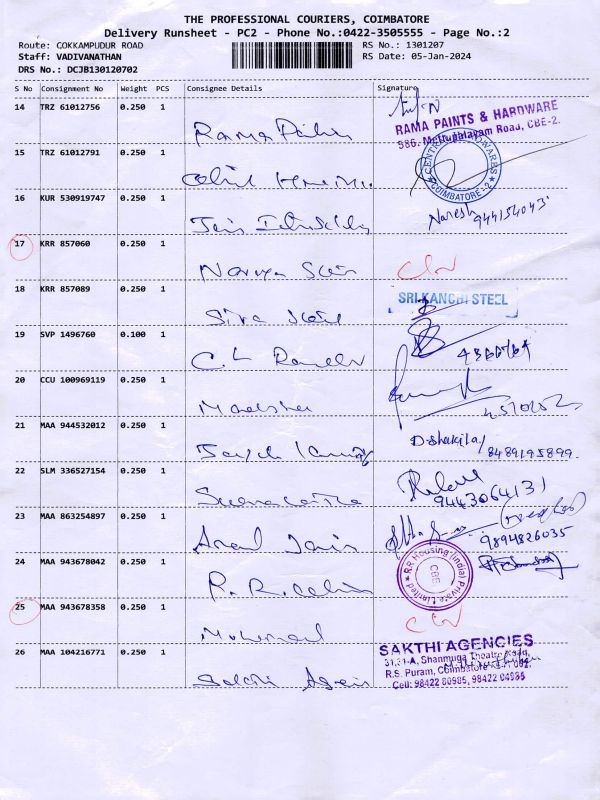 THE PROFESSIONAL COURIERS, COIMBATORE
Delivery Runsheet - PC2 - Phone No.:0422-3505555 - Page No.:2
Route: GOKKAMPUDUR ROAD
RS No.: 1301207
Staff: VADIVANATHAN
RS Date: 05-Jan-2024
DRS No.: DCJB130120702
S No Consignment No Weight PCS Consignee Details Signature
14 TRZ 61012756 0.250 1
Rama Paints
RAMA PAINTS & HARDWARE
586, Mettupalayam Road, CBE-2.
15 TRZ 61012791 0.250 1
CENTRAL HARDWARES
COIMBATORE-2
16 KUR 530919747 0.250 1
Jain
Naresh
17 KRR 857060 0.250 1
18 KRR 857089 0.250 1
Siva
SRI KANCHI STEEL
19 SVP 1496760 0.100 1
C.L
20 CCU 100969119 0.250 1
21 MAA 944532012 0.250 1
Dshakila
8489195899.
22 SLM 336527154 0.250 1
9443064131
23 MAA 863254897 0.250 1
Jain
9894826035
24 MAA 943678042 0.250 1
R.R.
RR Housing (India) Private Limited
CBE
25 MAA 943678358 0.250 1
Mohamed
26 MAA 104216771 0.250 1
Sakthi Agencies
SAKTHI AGENCIES
31,31-A, Shanmuga Theatre Road,
R.S. Puram, Coimbatore
Cell: 98422 80985, 98422 04985